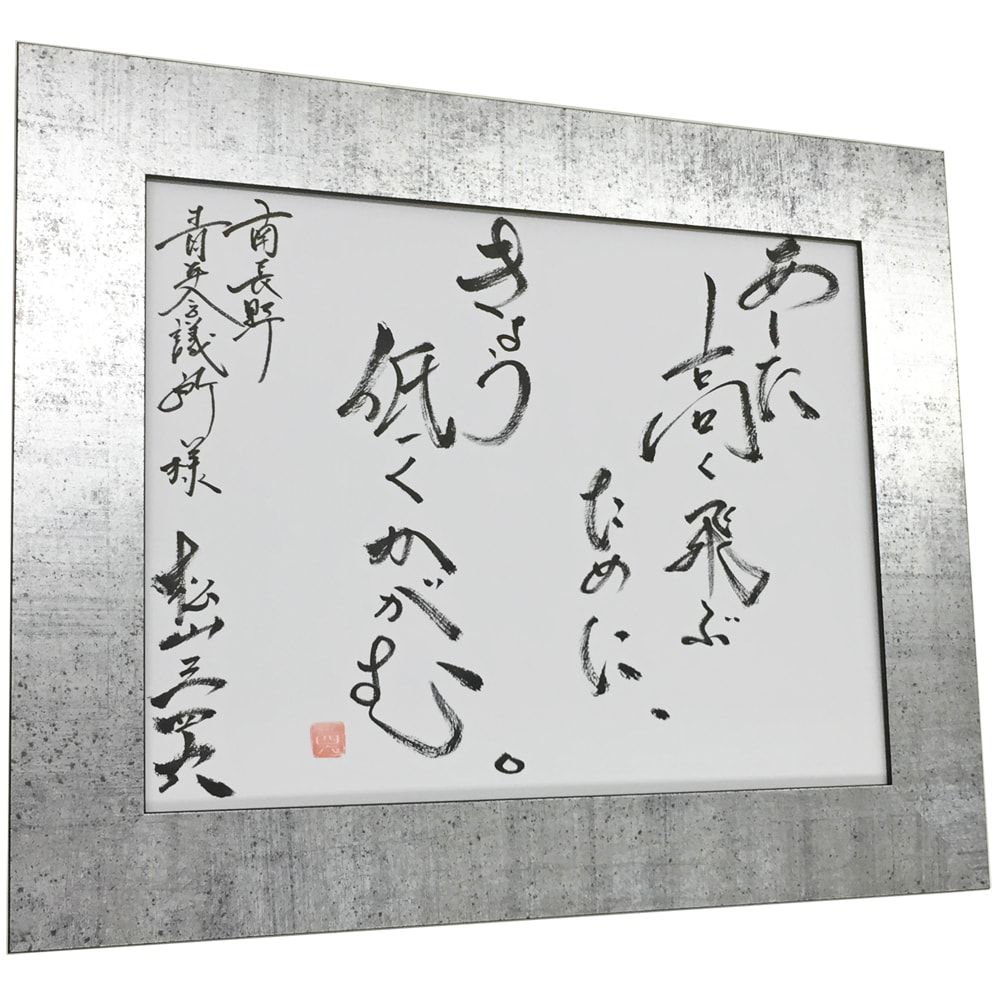 あした
高く飛ぶ
ために、
きょう
低くかがむ。
南長野
青年会議所様
松山三四六